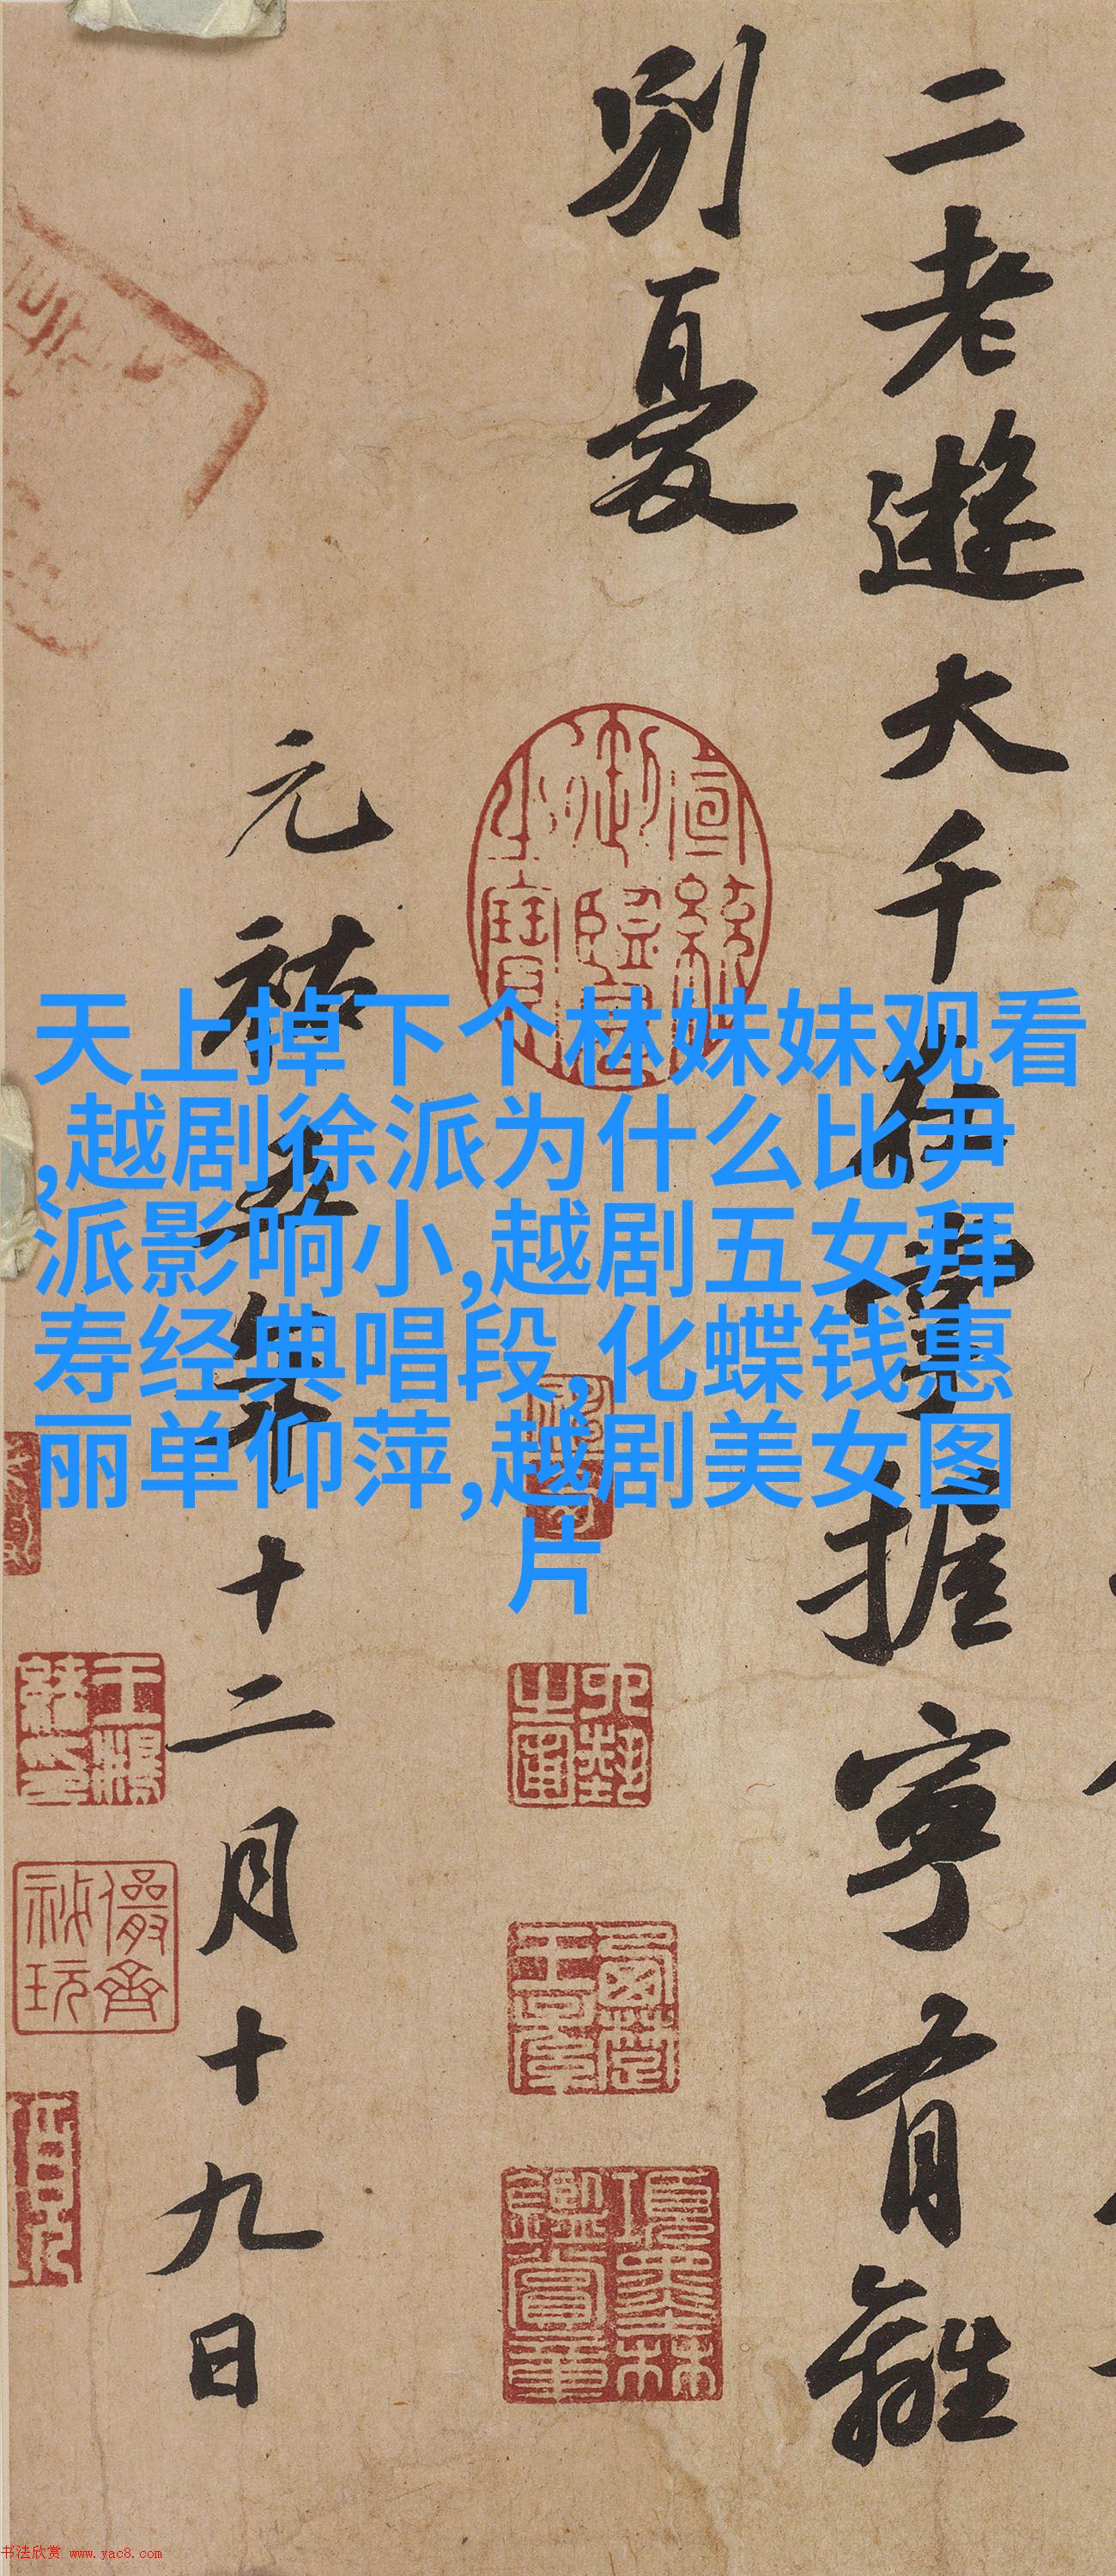 二老遊大千在掌握寧有離
別憂
元祐五年十二月十九日
天上掉下个林妹妹观看
,越剧徐派为什么比尹
派影响小,越剧五女拜
寿经典唱段,化蝶钱惠
丽单仰萍,越剧美女图
片
六藝之圃
項墨林鑑賞章
儼齋秘玩
书法欣赏 www.yac8.com